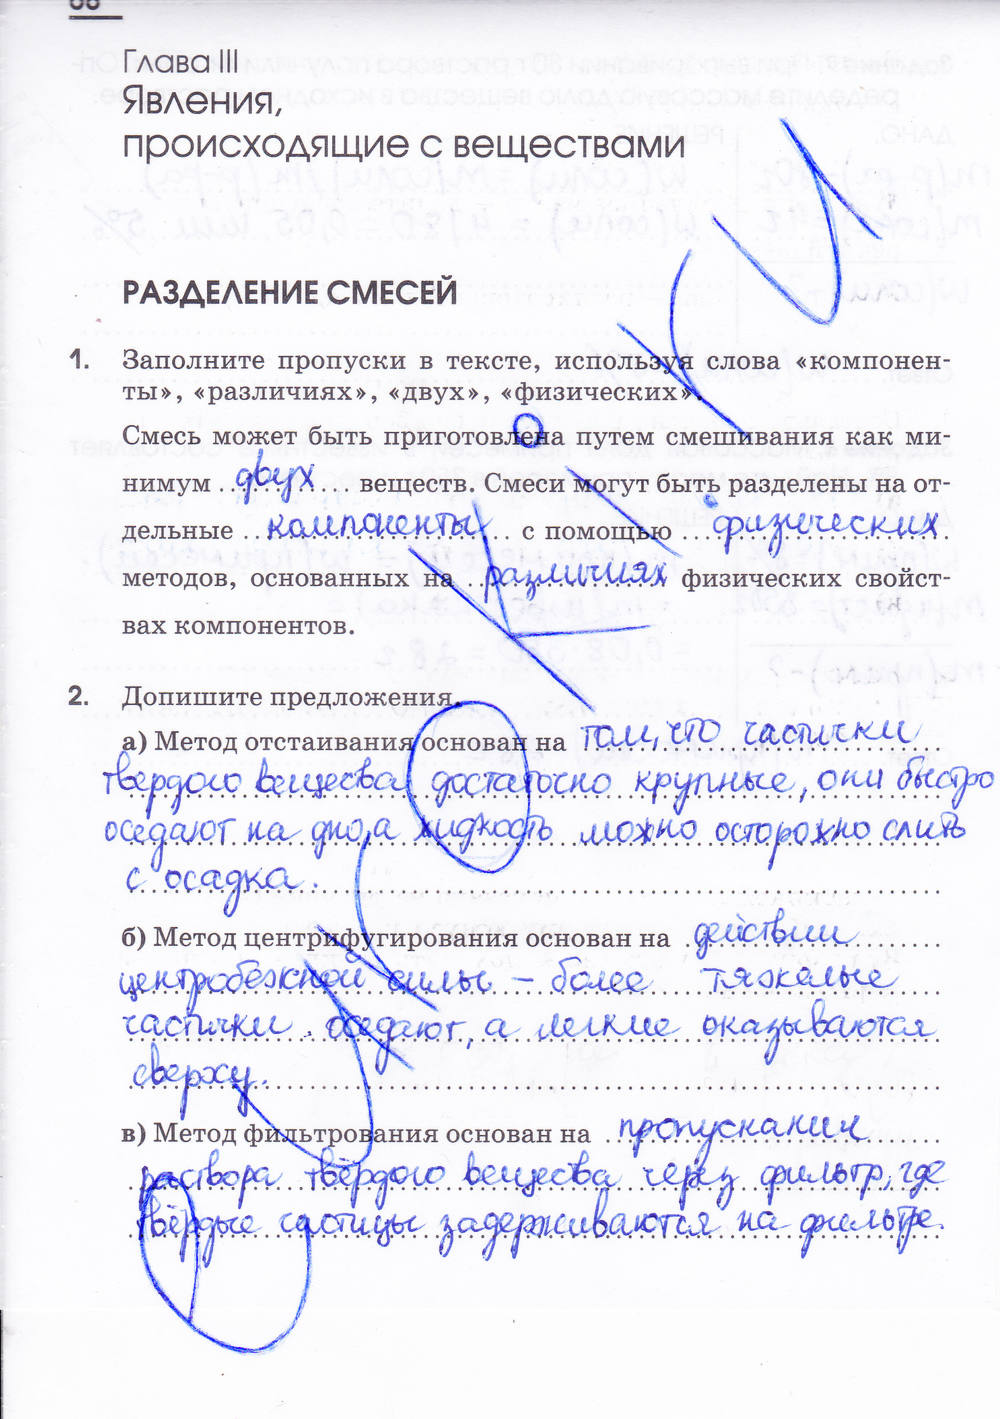 Глава III
Явления,
происходящие с веществами
РАЗДЕЛЕНИЕ СМЕСЕЙ
1. Заполните пропуски в тексте, используя слова «компонен-
ты», «различиях», «двух», «физических».
Смесь может быть приготовлена путем смешивания как ми-
нимум двух веществ. Смеси могут быть разделены на от-
дельные компоненты с помощью физических
методов, основанных на различиях физических свойст-
вах компонентов.
2. Допишите предложения.
а) Метод отстаивания основан на том, что частички
твердого вещества достаточно крупные, они быстро
оседают на дно, а жидкость можно осторожно слить
с осадка.
б) Метод центрифугирования основан на действии
центробежной силы – более тяжелые
частички оседают, а легкие оказываются
сверху.
в) Метод фильтрования основан на пропускании
раствора твёрдого вещества через фильтр, где
твёрдые частицы задерживаются на фильтре.